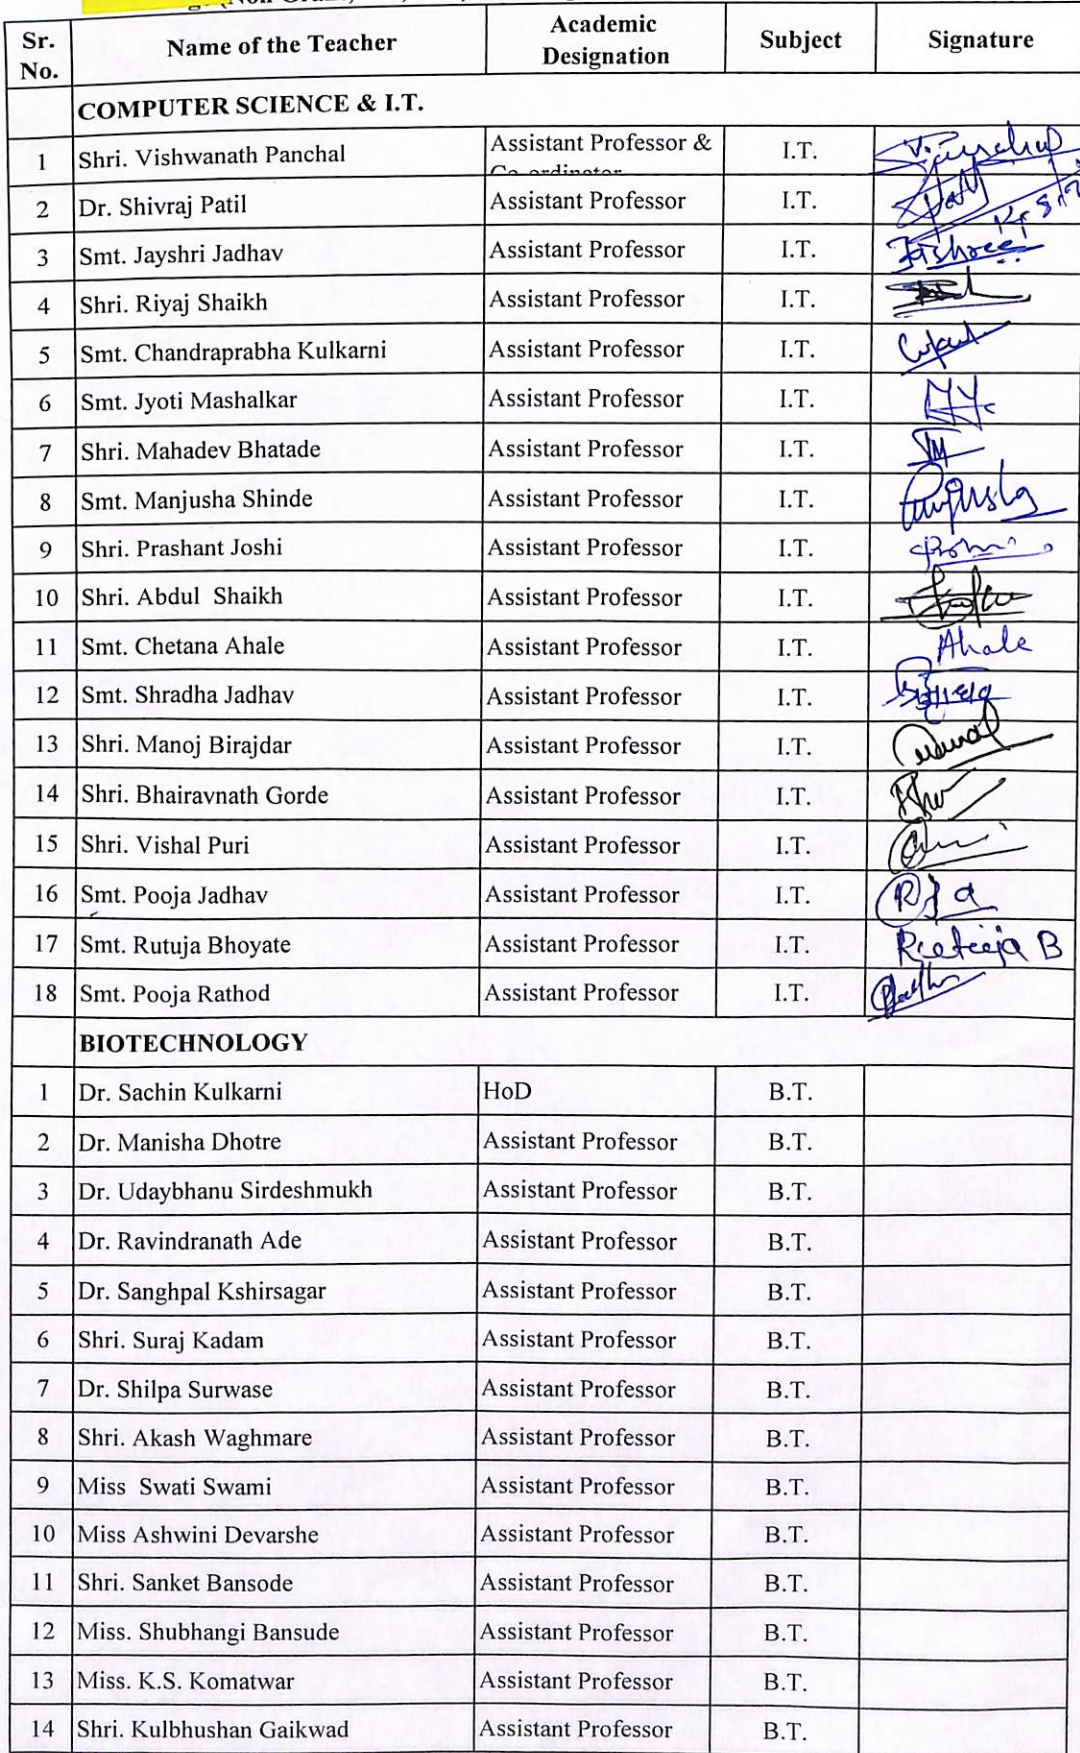 Sr. No. Name of the Teacher Academic Designation Subject Signature
COMPUTER SCIENCE & I.T.
1 Shri. Vishwanath Panchal Assistant Professor & Co-ordinator I.T.
2 Dr. Shivraj Patil Assistant Professor I.T.
3 Smt. Jayshri Jadhav Assistant Professor I.T.
4 Shri. Riyaj Shaikh Assistant Professor I.T.
5 Smt. Chandraprabha Kulkarni Assistant Professor I.T.
6 Smt. Jyoti Mashalkar Assistant Professor I.T.
7 Shri. Mahadev Bhatade Assistant Professor I.T.
8 Smt. Manjusha Shinde Assistant Professor I.T.
9 Shri. Prashant Joshi Assistant Professor I.T.
10 Shri. Abdul Shaikh Assistant Professor I.T.
11 Smt. Chetana Ahale Assistant Professor I.T. Ahale
12 Smt. Shradha Jadhav Assistant Professor I.T.
13 Shri. Manoj Birajdar Assistant Professor I.T.
14 Shri. Bhairavnath Gorde Assistant Professor I.T.
15 Shri. Vishal Puri Assistant Professor I.T.
16 Smt. Pooja Jadhav Assistant Professor I.T.
17 Smt. Rutuja Bhoyate Assistant Professor I.T.
18 Smt. Pooja Rathod Assistant Professor I.T.
BIOTECHNOLOGY
1 Dr. Sachin Kulkarni HoD B.T.
2 Dr. Manisha Dhotre Assistant Professor B.T.
3 Dr. Udaybhanu Sirdeshmukh Assistant Professor B.T.
4 Dr. Ravindranath Ade Assistant Professor B.T.
5 Dr. Sanghpal Kshirsagar Assistant Professor B.T.
6 Shri. Suraj Kadam Assistant Professor B.T.
7 Dr. Shilpa Surwase Assistant Professor B.T.
8 Shri. Akash Waghmare Assistant Professor B.T.
9 Miss Swati Swami Assistant Professor B.T.
10 Miss Ashwini Devarshe Assistant Professor B.T.
11 Shri. Sanket Bansode Assistant Professor B.T.
12 Miss. Shubhangi Bansude Assistant Professor B.T.
13 Miss. K.S. Komatwar Assistant Professor B.T.
14 Shri. Kulbhushan Gaikwad Assistant Professor B.T.